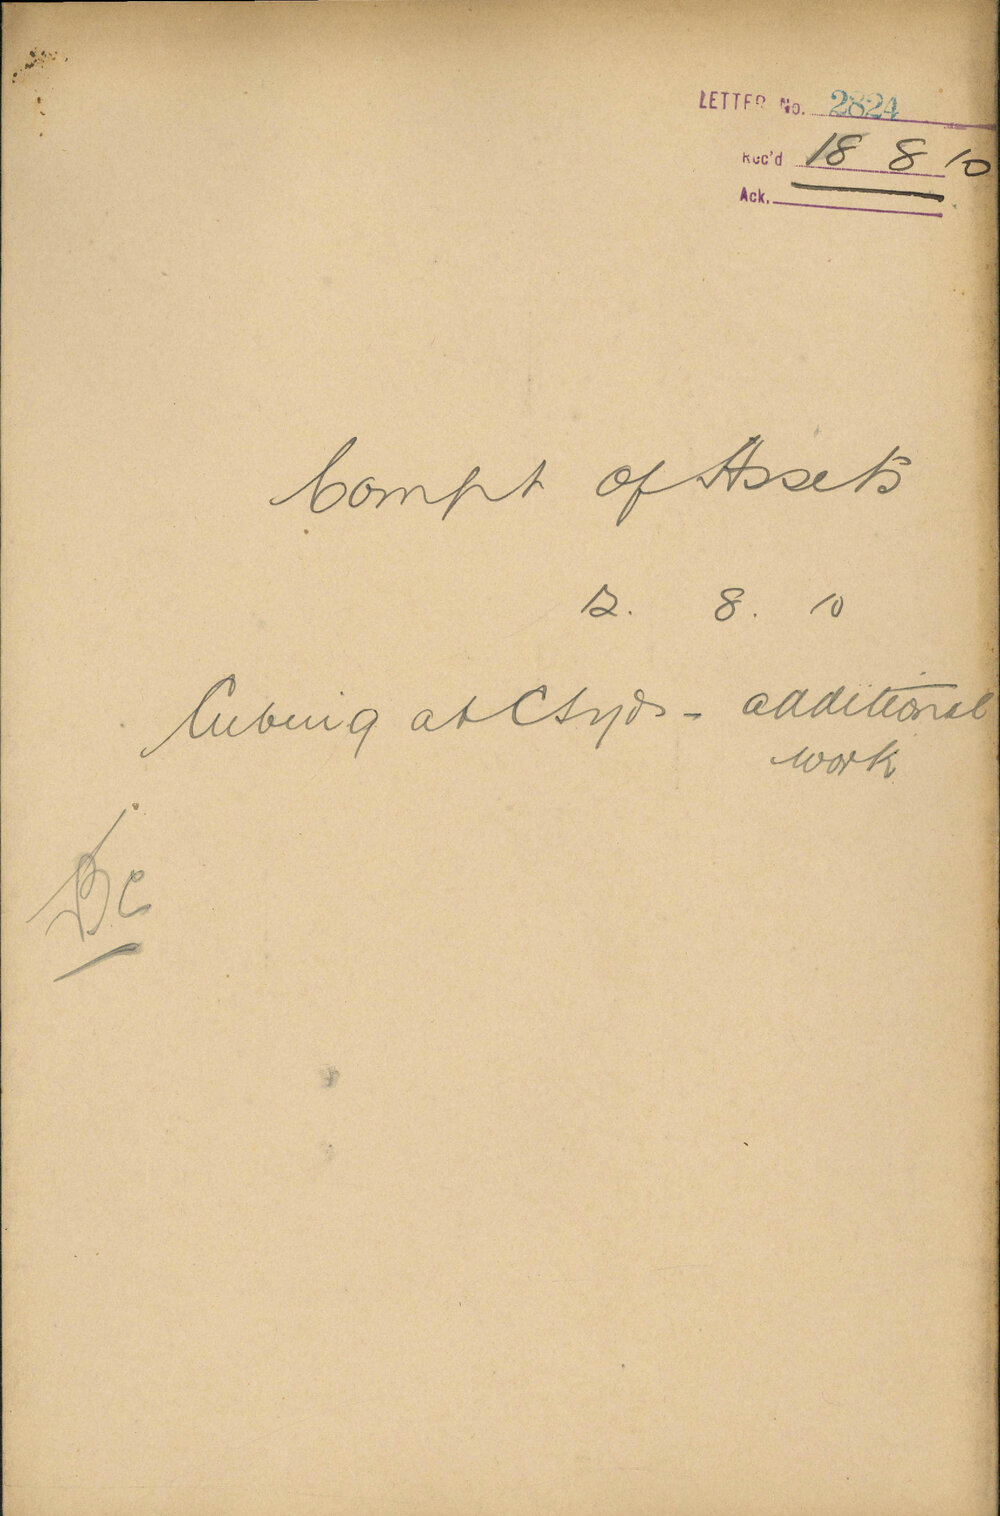 LETTER No. 2824
Rec'd 18 8 10
Ack.
Compt of Assets
12. 8. 10
Cubing at Ctyds - additional
work